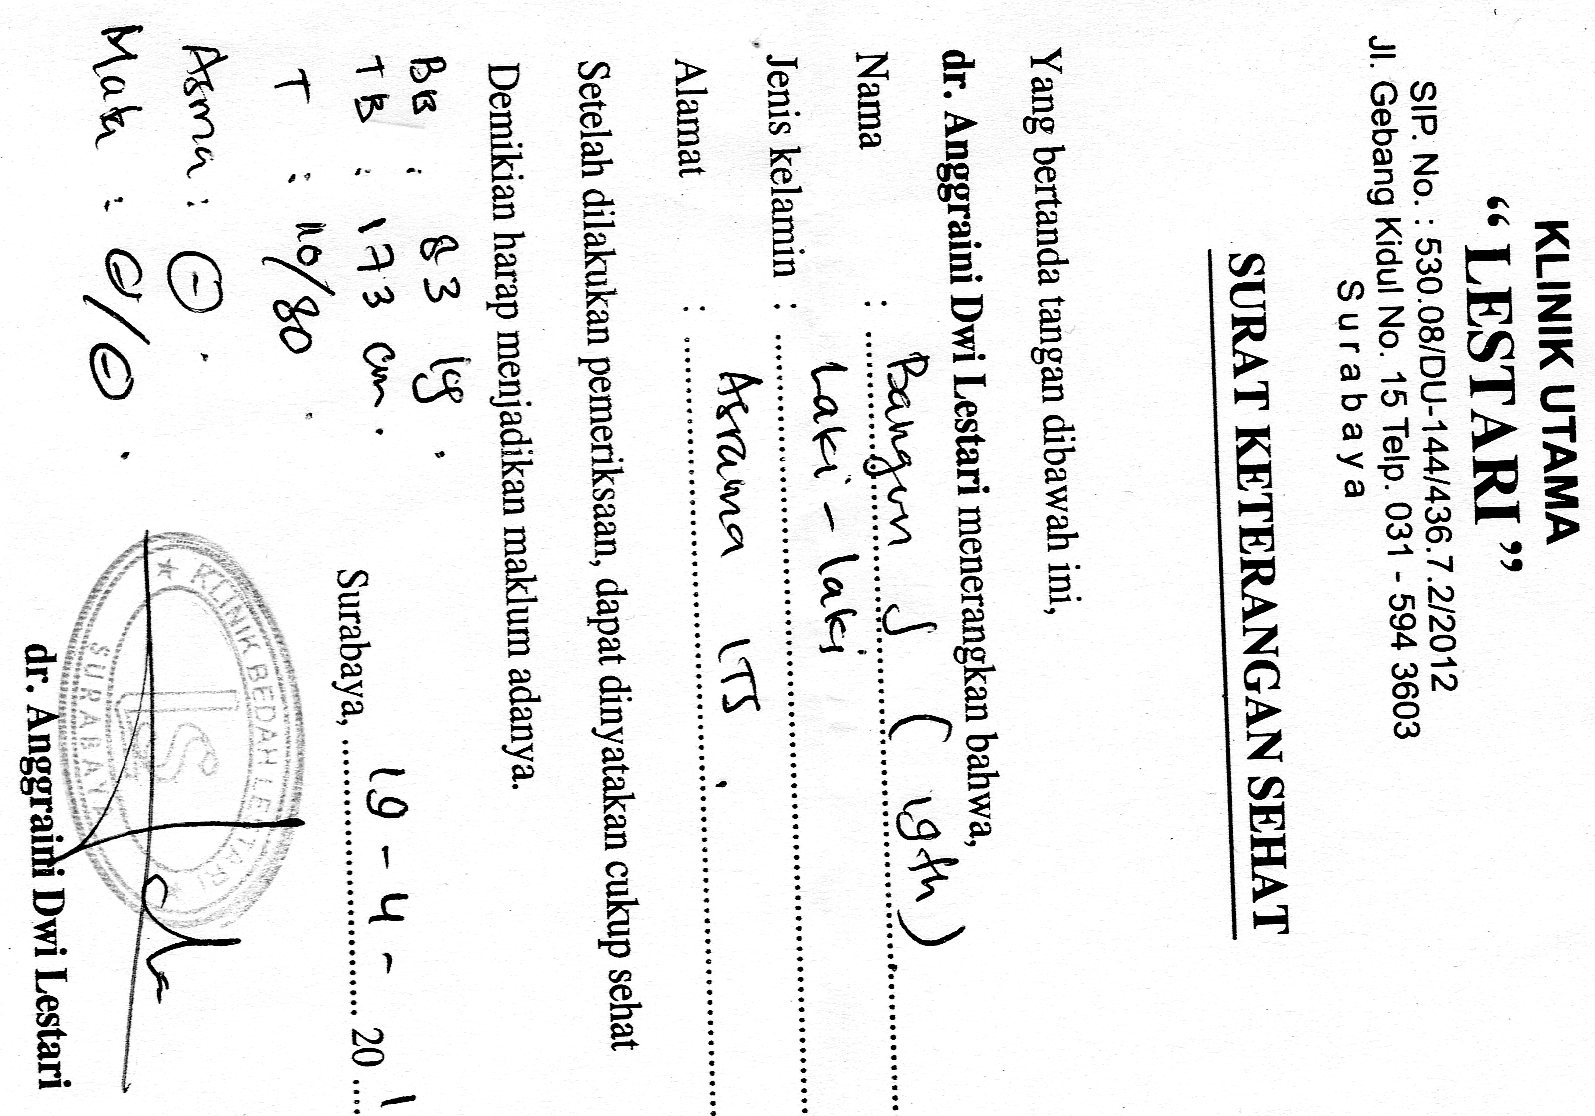 KLINIK UTAMA
“ LESTARI ”
SIP. No. : 530.08/DU-144/436.7.2/2012
Jl. Gebang Kidul No. 15 Telp. 031 - 594 3603
Surabaya
SURAT KETERANGAN SEHAT
Yang bertanda tangan dibawah ini,
dr. Anggraini Dwi Lestari menerangkan bahwa,
Nama : Bangun S ( 19th )
Jenis kelamin : Laki - laki
Alamat : Asrama ITS .
Setelah dilakukan pemeriksaan, dapat dinyatakan cukup sehat
Demikian harap menjadikan maklum adanya.
BB : 83 kg .
TB : 173 cm .
T : 110/80 .
Asma : (-) .
Mata : (-)/(-) .
Surabaya, 19 - 4 - 20 1
KLINIK BEDAH LESTARI
SURABAYA
dr. Anggraini Dwi Lestari